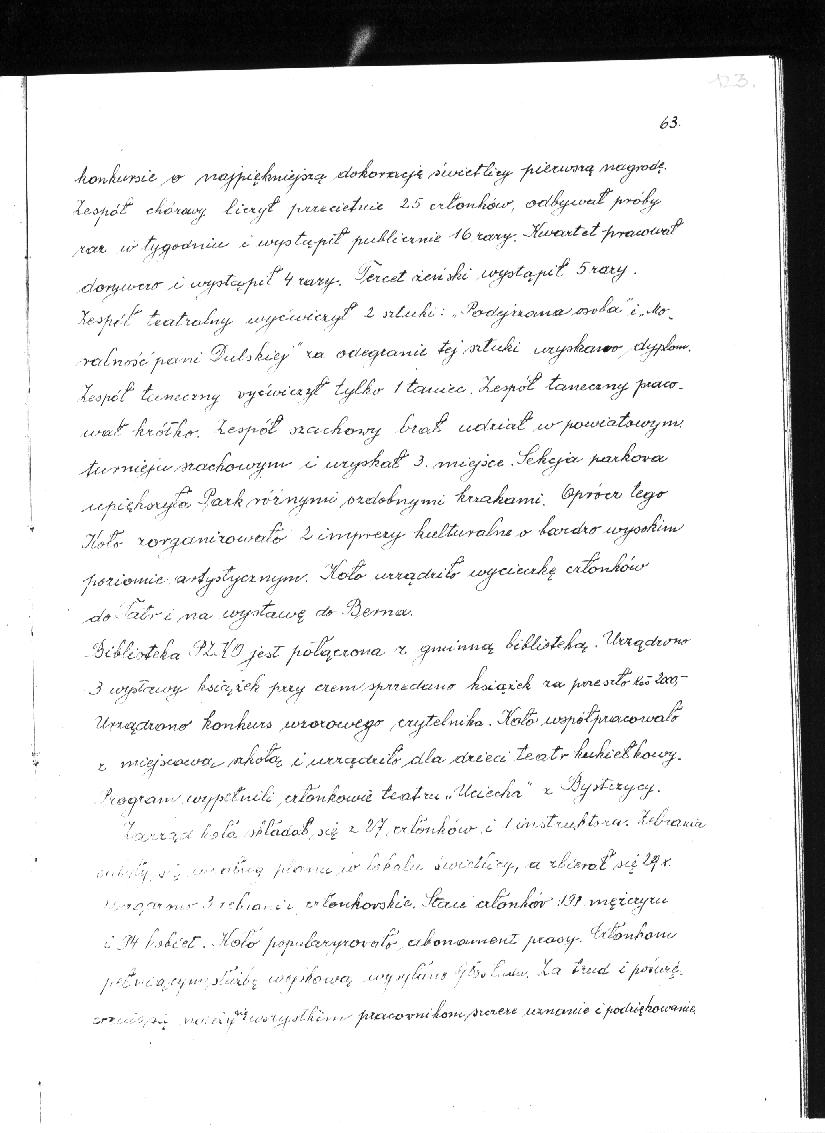 123.
63.
konkursie o najpiękniejszą dokorację świetlicy pierwszą nagrodę.
Zespół chórowy liczył przecietnie 25 członków, odbywał próby
raz w tygodniu i wystąpił publicznie 16 razy. Kwartet pracował
dorywczo i wystąpił 4 razy. Tercet żeński wystąpił 5 razy.
Zespół teatralny wyćwiczył 2 sztuki: „Podejrzana osoba" i „Mo-
ralność pani Dulskiej" za odegranie tej sztuki uzyskano dyplom.
Zespół taneczny wyćwiczył tylko 1 taniec. Zespół taneczny praco-
wał krótko. Zespół szachowy brał udział w powiatowym
turnieju szachowym i uzyskał 3. miejsce. Sekcja parkova
upiększyła Park różnymi ozdobnymi krzakami. Oprócz tego
Koło zorganizowało 2 imprezy kulturalne o bardzo wysokim
poziomie artystycznym. Koło urządziło wycieczkę członków
do Tatr i na wystawę do Berna.
Biblioteka PZKO jest połączona z gminną biblioteką. Urządzono
3 wystawy książek przy czem sprzedano książek za przeszło Kčs 2000,-
Urządzono konkurs wzorowego czytelnika. Koło współpracowało
z miejscową szkołą i urządziło dla dzieci teatr kukiełkowy.
Program wypełnili członkowie teatru „Uciecha" z Bystrzycy.
Zarząd koła składał się z 27 członków i 1 instruktora. Zebrania
się według planu w lokalu świetlicy, a zbierał się 29 x.
3 zebrania członkovskie. Stan członków: 191 mężczyzn
i 94 kobiet. Koło popularyzovało abonament prasy. Członkom
pełniącym służbę wojskową wysyłano Głos Ludu. Za trud i poświę-
cenie się należy się wszystkim pracovnikom szczere uznanie i podziękowanie.